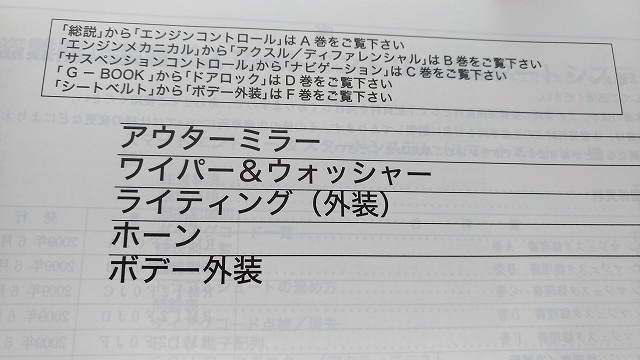 「総説」から「エンジンコントロール」はA巻をご覧下さい
「エンジンメカニカル」から「アクスル／ディファレンシャル」はB巻をご覧下さい
「サスペンションコントロール」から「ナビゲーション」はC巻をご覧下さい
「G－BOOK」から「ドアロック」はD巻をご覧下さい
「シートベルト」から「ボデー外装」はF巻をご覧下さい
アウターミラー
ワイパー＆ウォッシャー
ライティング（外装）
ホーン
ボデー外装